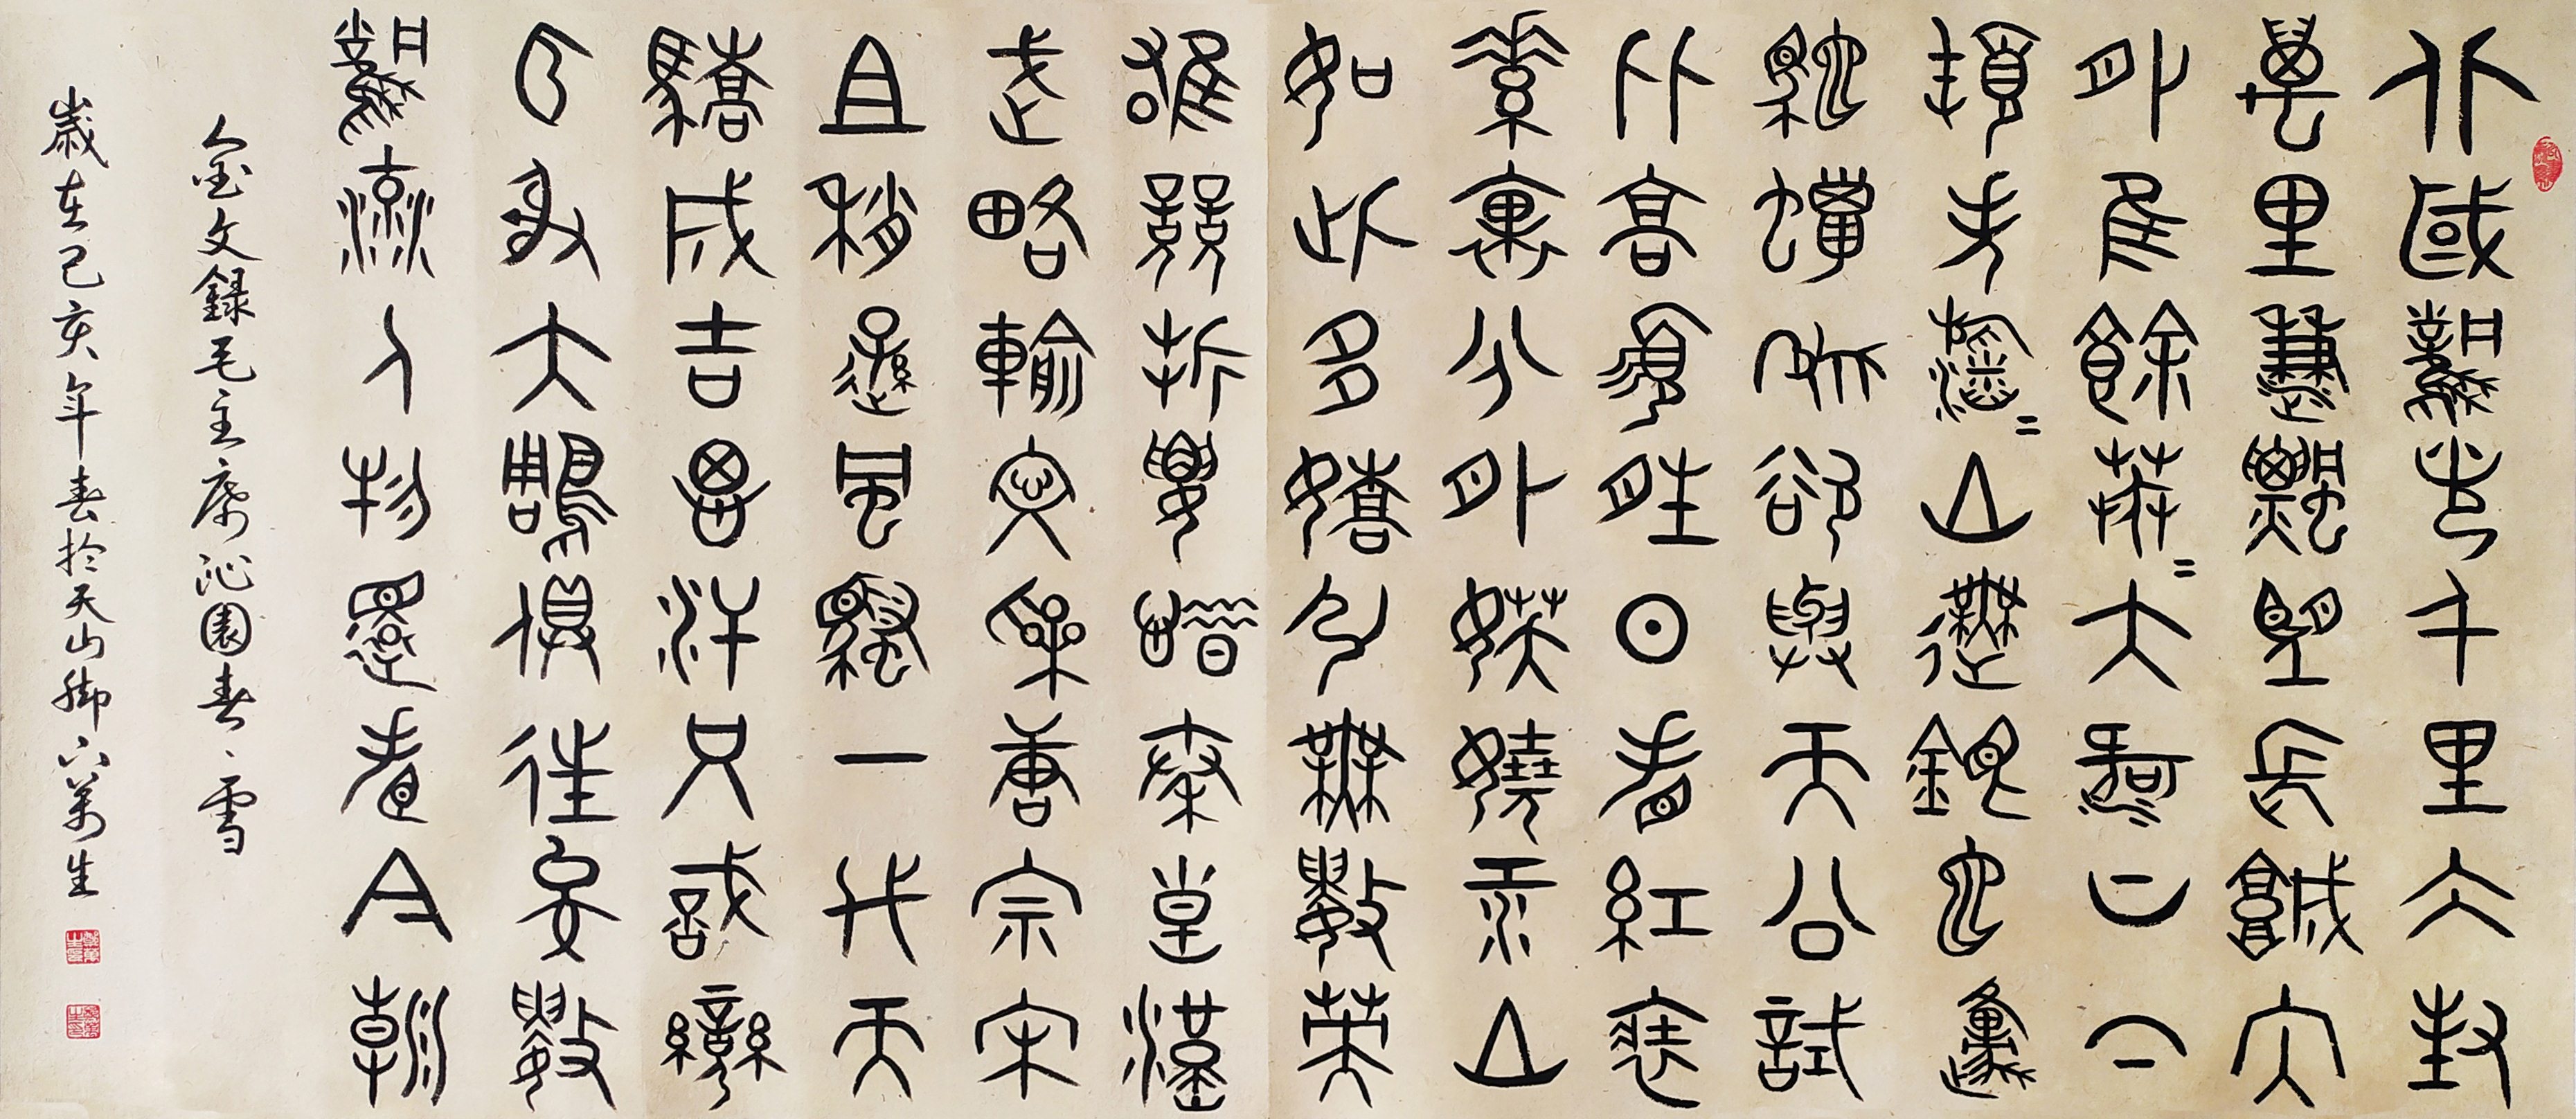 北國風光千里冰封
萬里雪飄望長城內
外惟餘莽=大河上下
頓失滔=山舞銀蛇原
馳蠟象欲與天公試
比高須晴日看紅裝
素裹分外妖嬈江山
如此多嬌引無數英
雄競折腰惜秦皇漢
武略輸文采唐宗宋
且稍遜風騷一代天
驕成吉思汗只識彎
弓射大鵰俱往矣數
風流人物還看今朝
金文錄毛主席沁園春、雪
歲在己亥年春於天山腳下萬生